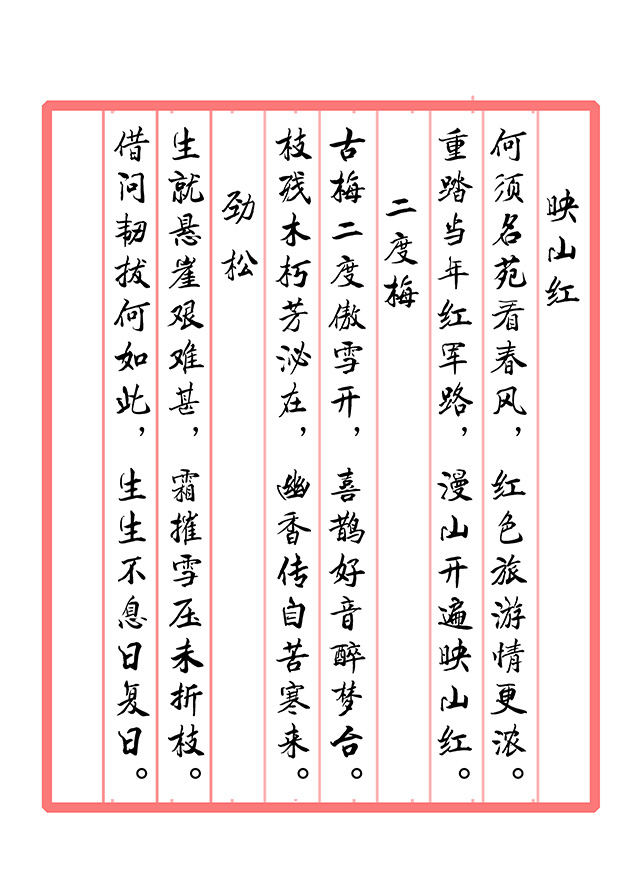 映山红
何须名苑看春风，红色旅游情更浓。
重踏当年红军路，漫山开遍映山红。
二度梅
古梅二度傲雪开，喜鹊好音醉梦台。
枝残木朽芳泌在，幽香传自苦寒来。
劲松
生就悬崖艰难甚，霜摧雪压未折枝。
借问韧拔何如此，生生不息日复日。